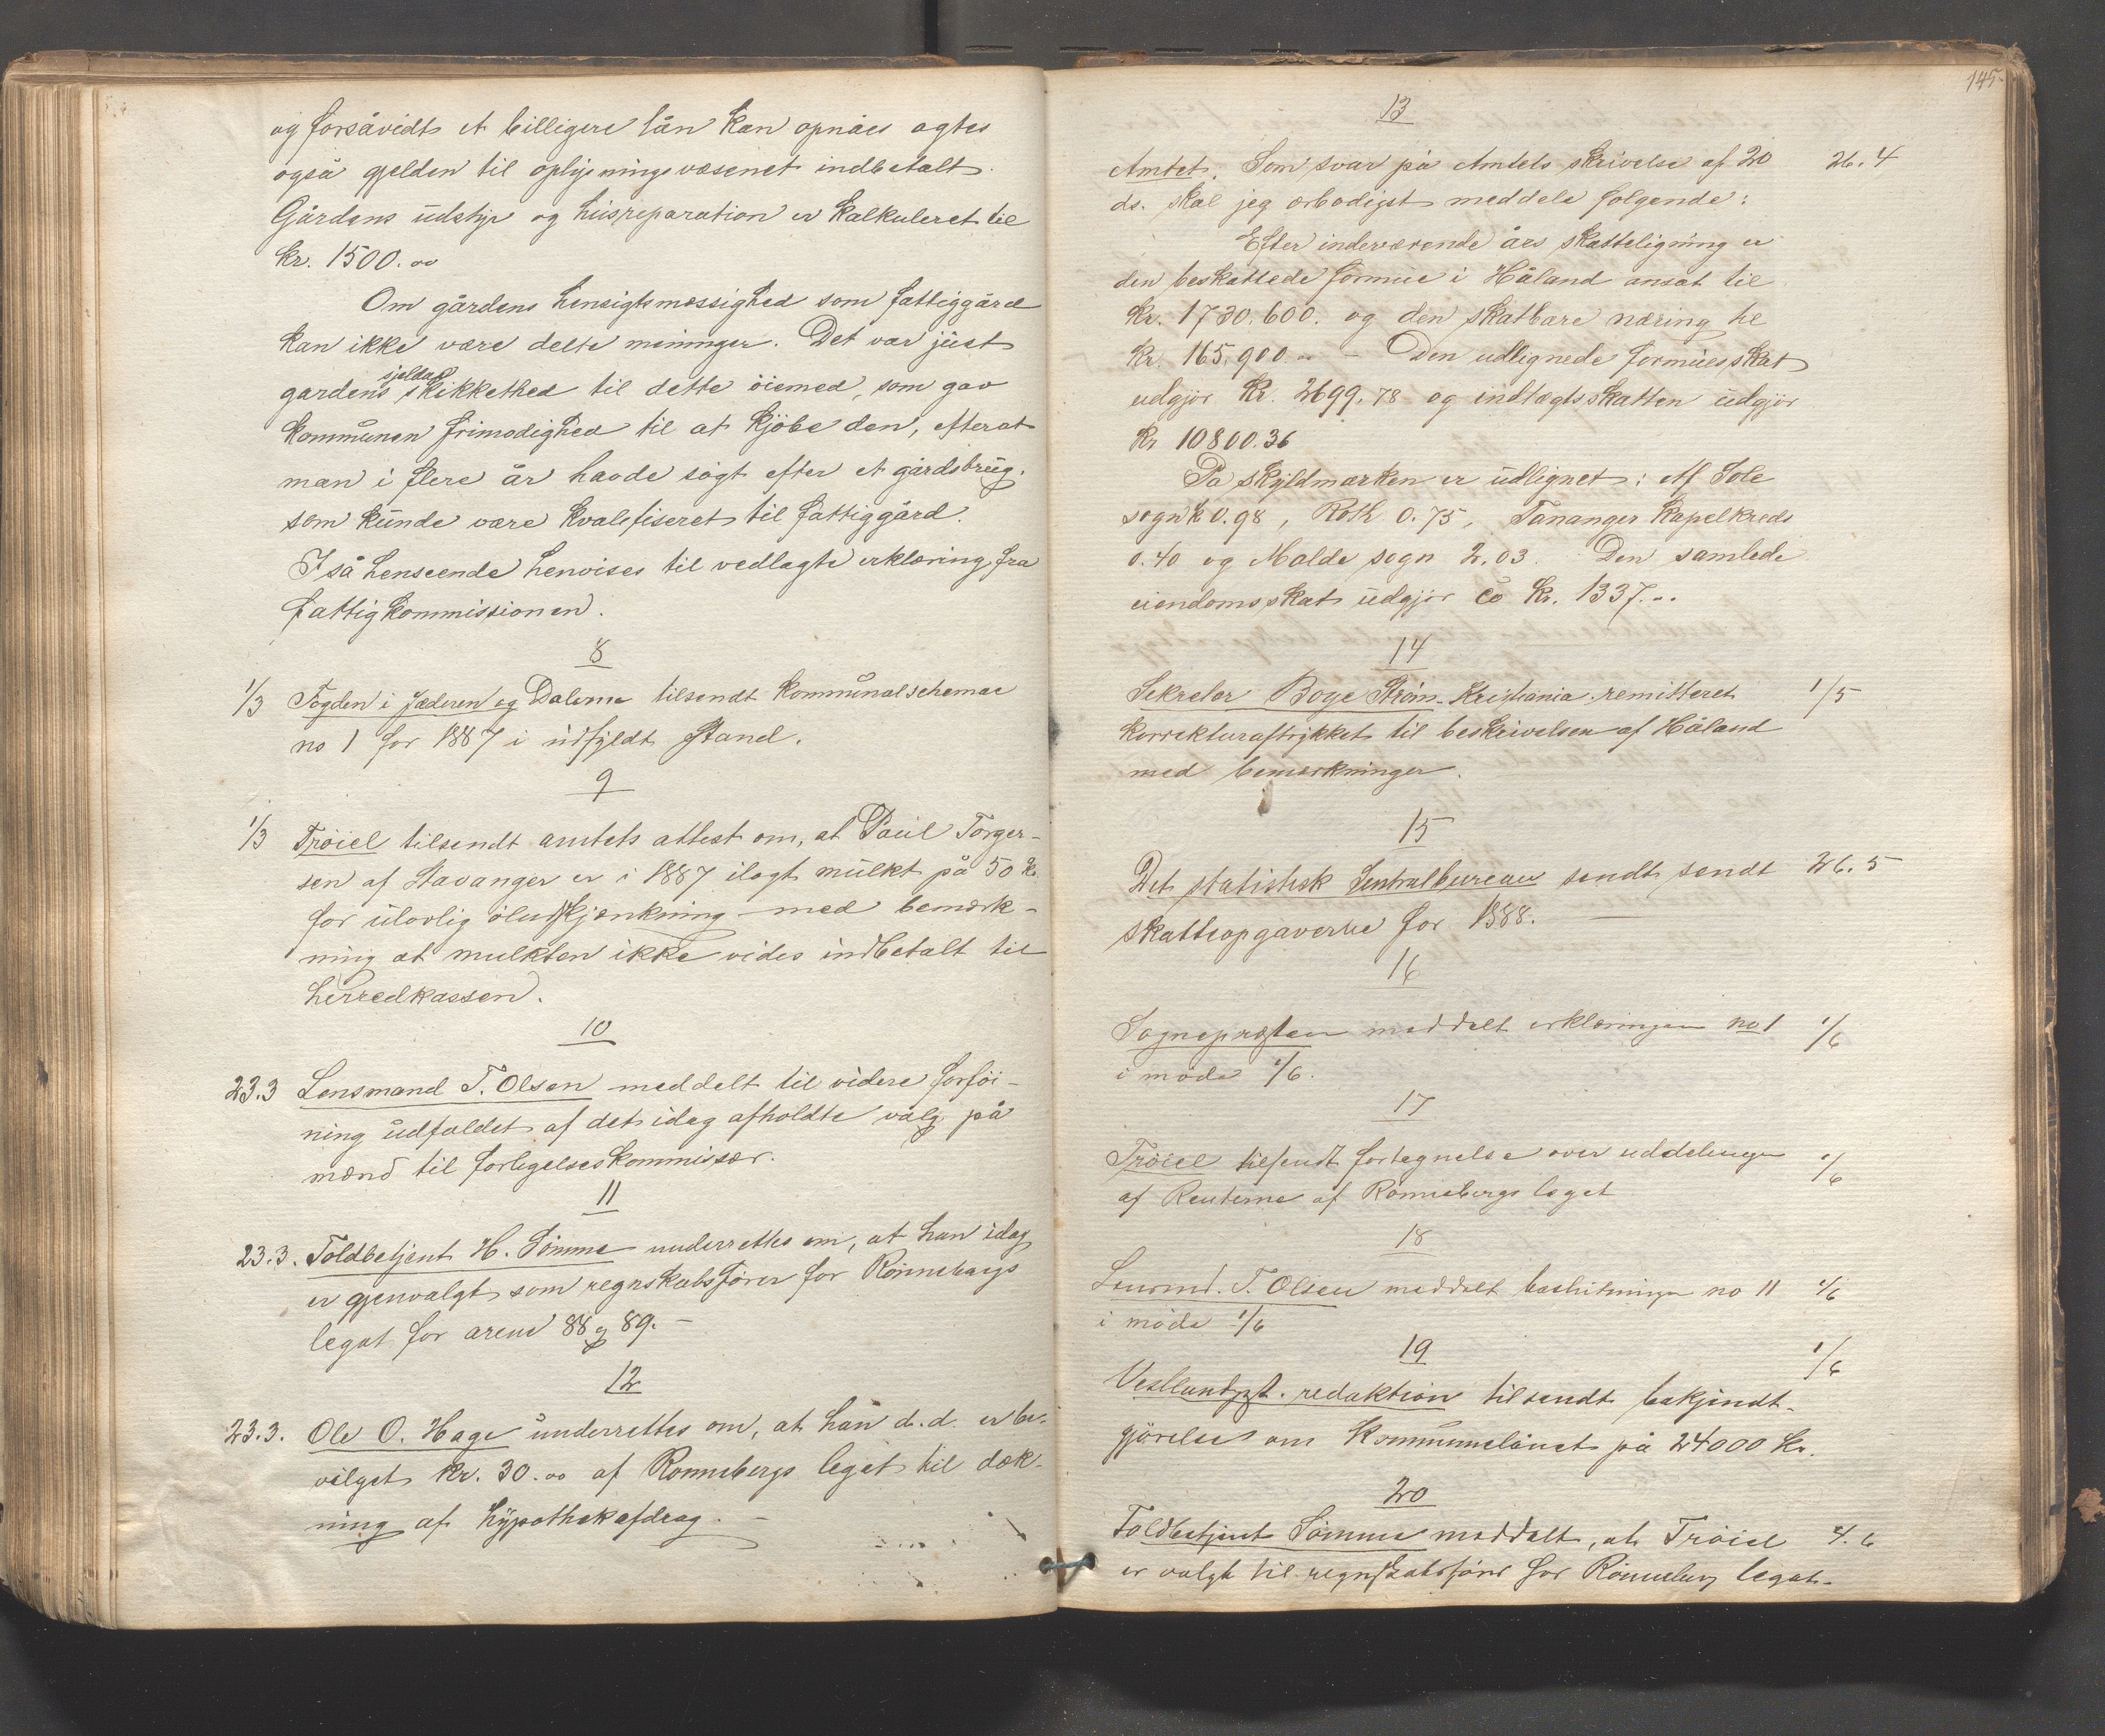 og forsåvidt et billigere lån kan opnåes agtes
også gjelden til oplysningsvæsenet indbetalt.
Gårdens udstyr og husreparation er kalkuleret til
kr. 1500.00
Om gårdens hensigtsmæssighed som fattiggård
kan ikke være delte meninger. Det var just
gardens sjeldne skikkethed til dette öiemed, som gav
kommunen frimodighed til at kjöbe den, efterat
man i flere år havde sögt efter et gårdsbrug,
som kunde være kvalifiseret til fattiggård.
I så henseende henvises til vedlagte erklæring fra
fattigkommissionen.
8
1/3 Fogden i Jæderen og Dalerne tilsendt kommunalschemae
no 1 for 1887 i udfyldt stand.
9
1/3 Tröiel tilsendt amtets attest om, at Paul Torger-
sen af Stavanger er i 1887 ilagt mulkt på 50 kr.
for ulovlig öludskjænkning - med bemærk-
ning at mulkten ikke vides indbetalt til
herredkassen.
10
23.3 Lensmand T. Olsen meddelt til videre forföi-
ning udfaldet af det idag afholdte valg på
mænd til forligelseskommissær.
11
23.3. Toldbetjent H. Sömme underrettes om, at han idag
er gjenvalgt som regnskabsförer for Rönnebergs
legat for arene 88 og 89. -
12
23.3. Ole O. Hage underrettes om, at han d.d. er be-
vilget kr. 30.00 af Ronnebergs legat til dæk-
ning af hypothekafdrag. -
145.
13
Amtet. Som svar på Amtets skrivelse af 20 26.4
ds. skal jeg ærbödigst meddele fölgende:
Efter inderværende års skatteligning er
den beskattede formue i Håland ansat til
kr. 1730.600. og den skatbare næring til
kr. 165.900.- - Den udlignede formuesskat
udgjör kr. 2699.78 og indtægtsskatten udgjör
kr 10800.36
På skyldmarken er udlignet: Af Sole
sogn k 0.98, Roth 0.75, Tananger kapelkreds
0.40 og Malde sogn 2.03. Den samlede
eiendomsskat udgjör co kr. 1337...
14
Sekretær Boye Ström - Kristiania remitteret 1/5
korrekturaftrykket til beskrivelsen af Håland
med bemærkninger.
15
Det statistisk Sentralbureau sendt sendt 26.5
skatteopgaverne for 1888.
16
Sognepræsten meddelt erklæringen no 1 1/6
i möde 1/6.
17
Tröiel tilsendt fortegnelse over uddelingen 1/6
af Renterne af Rönnebergs legat
18
Lensmd. T. Olsen meddelt beslutningen no 11 1/6
i möde 1/6
19
Vestlandspst. redaktion tilsendt bekjendt- 1/6
gjörelse om kommunelånet på 24000 kr.
20
Toldbetjent Sömme meddelt, at Tröiel 4.6
er valgt til regnskabsförer for Rönneberg legat.